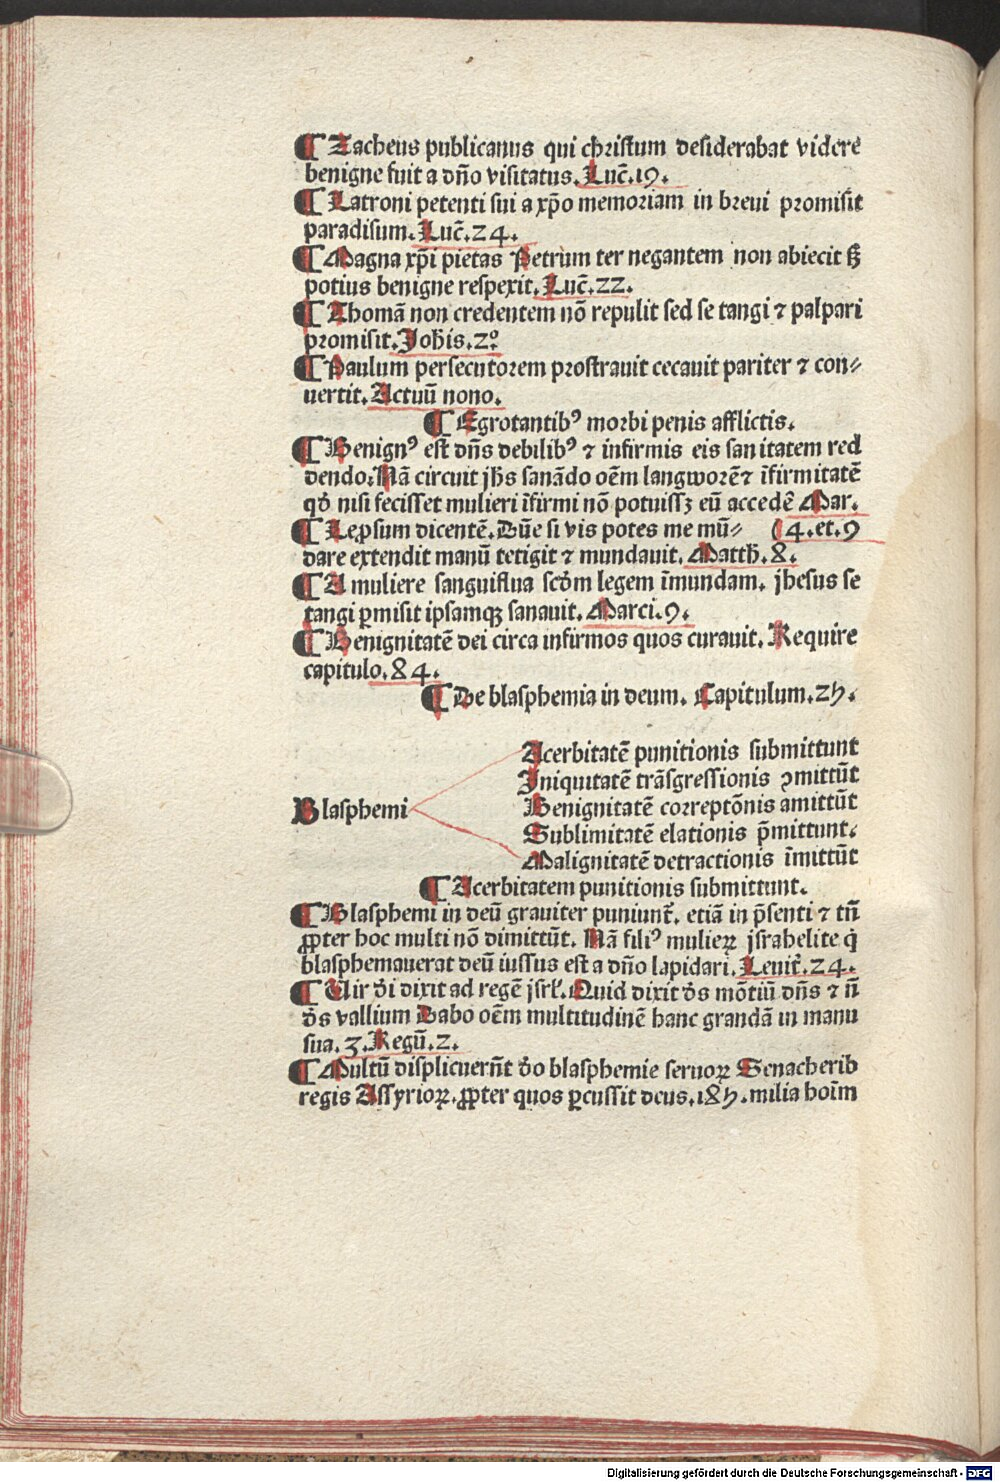 ¶ Zacheus publicanus qui christum desiderabat videre
benigne fuit a dño visitatus. Luc̄.19.
¶ Latroni petenti sui a xp̄o memoriam in brevi promisit
paradisum. Luc̄.24.
¶ Magna xp̄i pietas Petrum ter negantem non abiecit sꝫ
potius benigne respexit. Luc̄.22.
¶ Thomā non credentem nō repulit sed se tangi ⁊ palpari
promisit. Joh̄is.2⁰
¶ Paulum persecutorem prostravit cecavit pariter ⁊ con⸗
uertit. Actuū nono.
¶ Egrotantibꝰ morbi penis afflictis.
¶ Benignꝰ est dn̄s debilibꝰ ⁊ infirmis eis sanitatem red
dendo. Nā circuit jhs sanādo oēm langworē ⁊ īfirmitatē
qđ nisi fecisset mulieri īfirmi nō potuissꝫ eū accedē Mar.
¶ Leprsum dicentē. Dn̄e si vis potes me mū⸗ (4.et.9
dare extendit manū tetigit ⁊ mundauit. Matth̄.8.
¶ A muliere sanguiflua scđm legem īmundam. jhesus se
tangi ꝑmisit ipsamqꝫ sanauit. Marci.9.
¶ Benignitatē dei circa infirmos quos curauit. Require
capitulo.84.
¶ De blasphemia in deum. Capitulum.25.
Acerbitatē punitionis submittunt
Iniquitatē trāsgressionis ꝯmittūt
Blasphemi Benignitatē correptōnis amittūt
Sublimitatē elationis p̄mittunt.
Malignitatē detractionis īmittūt
¶ Acerbitatem punitionis submittunt.
¶ Blasphemi in deū grauiter puniunt̄. etiā in p̄senti ⁊ tn̄
ꝓpter hoc multi nō dimittūt. Nā filiꝰ mulieꝝ jsrahelite q̇
blasphemauerat deū iussus est a dño lapidari. Leuit̄.24.
¶ Vir đi dixit ad regē jsrl̄. Quid dixit đs mōtiū dn̄s ⁊ n̄
đs vallium Dabo oēm multitudinē hanc grandā in manu
sua. 3. Regū.2.
¶ Multū displicuerūt đo blasphemie seruoꝝ Senacherib
regis Assyrioꝝ. ꝓpter quos ꝑcussit deus.185.milia hoīm
Digitalisierung gefördert durch die Deutsche Forschungsgemeinschaft - DFG